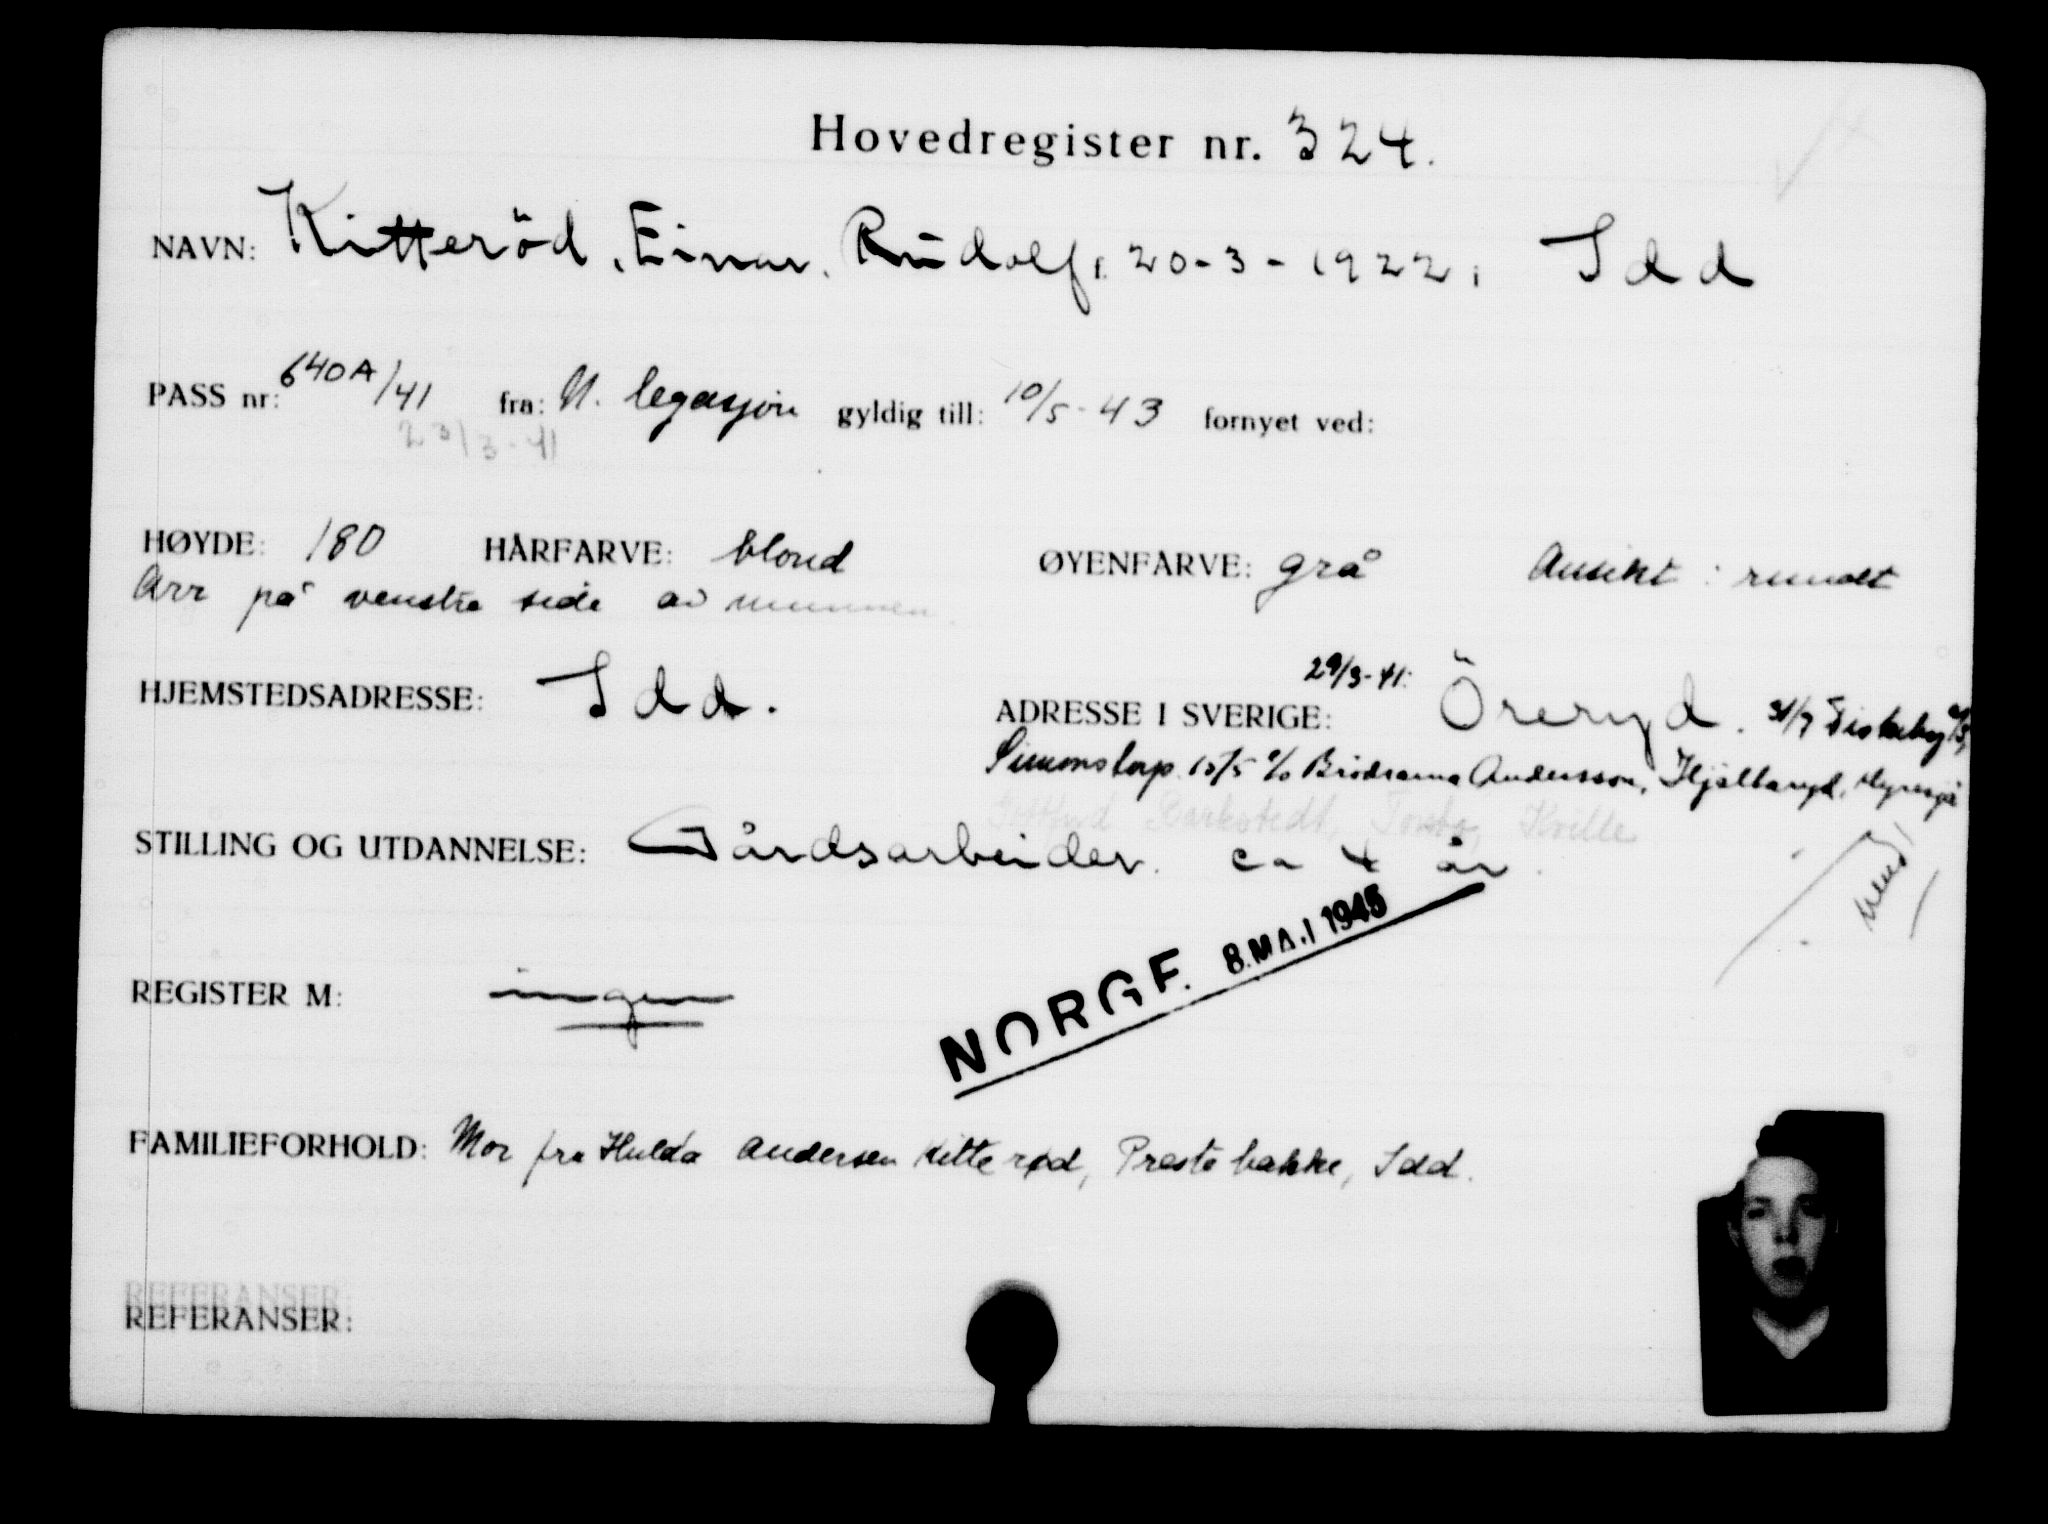 Hovedregister nr. 324.
NAVN: Kitteröd, Einar, Rudolf, 20-3-1922, Idd
PASS nr: 640A/41 fra: N. legasjon gyldig till: 10/5-43 fornyet ved:
23/3-41
HØYDE: 180 HÅRFARVE: blond ØYENFARVE: grå Ansikt: rundt
Arr på venstre side av munnen.
HJEMSTEDSADRESSE: Idd. ADRESSE I SVERIGE: 29/3-41: Öreryd. 31/7 Fiskeby
Simonstorp. 15/5 c/o Bröderna Andersson, Hjältaryd, Myresjö
Barkstedt, Kville
STILLING OG UTDANNELSE: Gårdsarbeider. ca 4 år.
REGISTER M: ingen
NORGE. 8. MAJ 1945
FAMILIEFORHOLD: Mor fru Hulda Andersen Kitterød, Prestebakke, Idd.
REFERANSER:
REFERANSER: